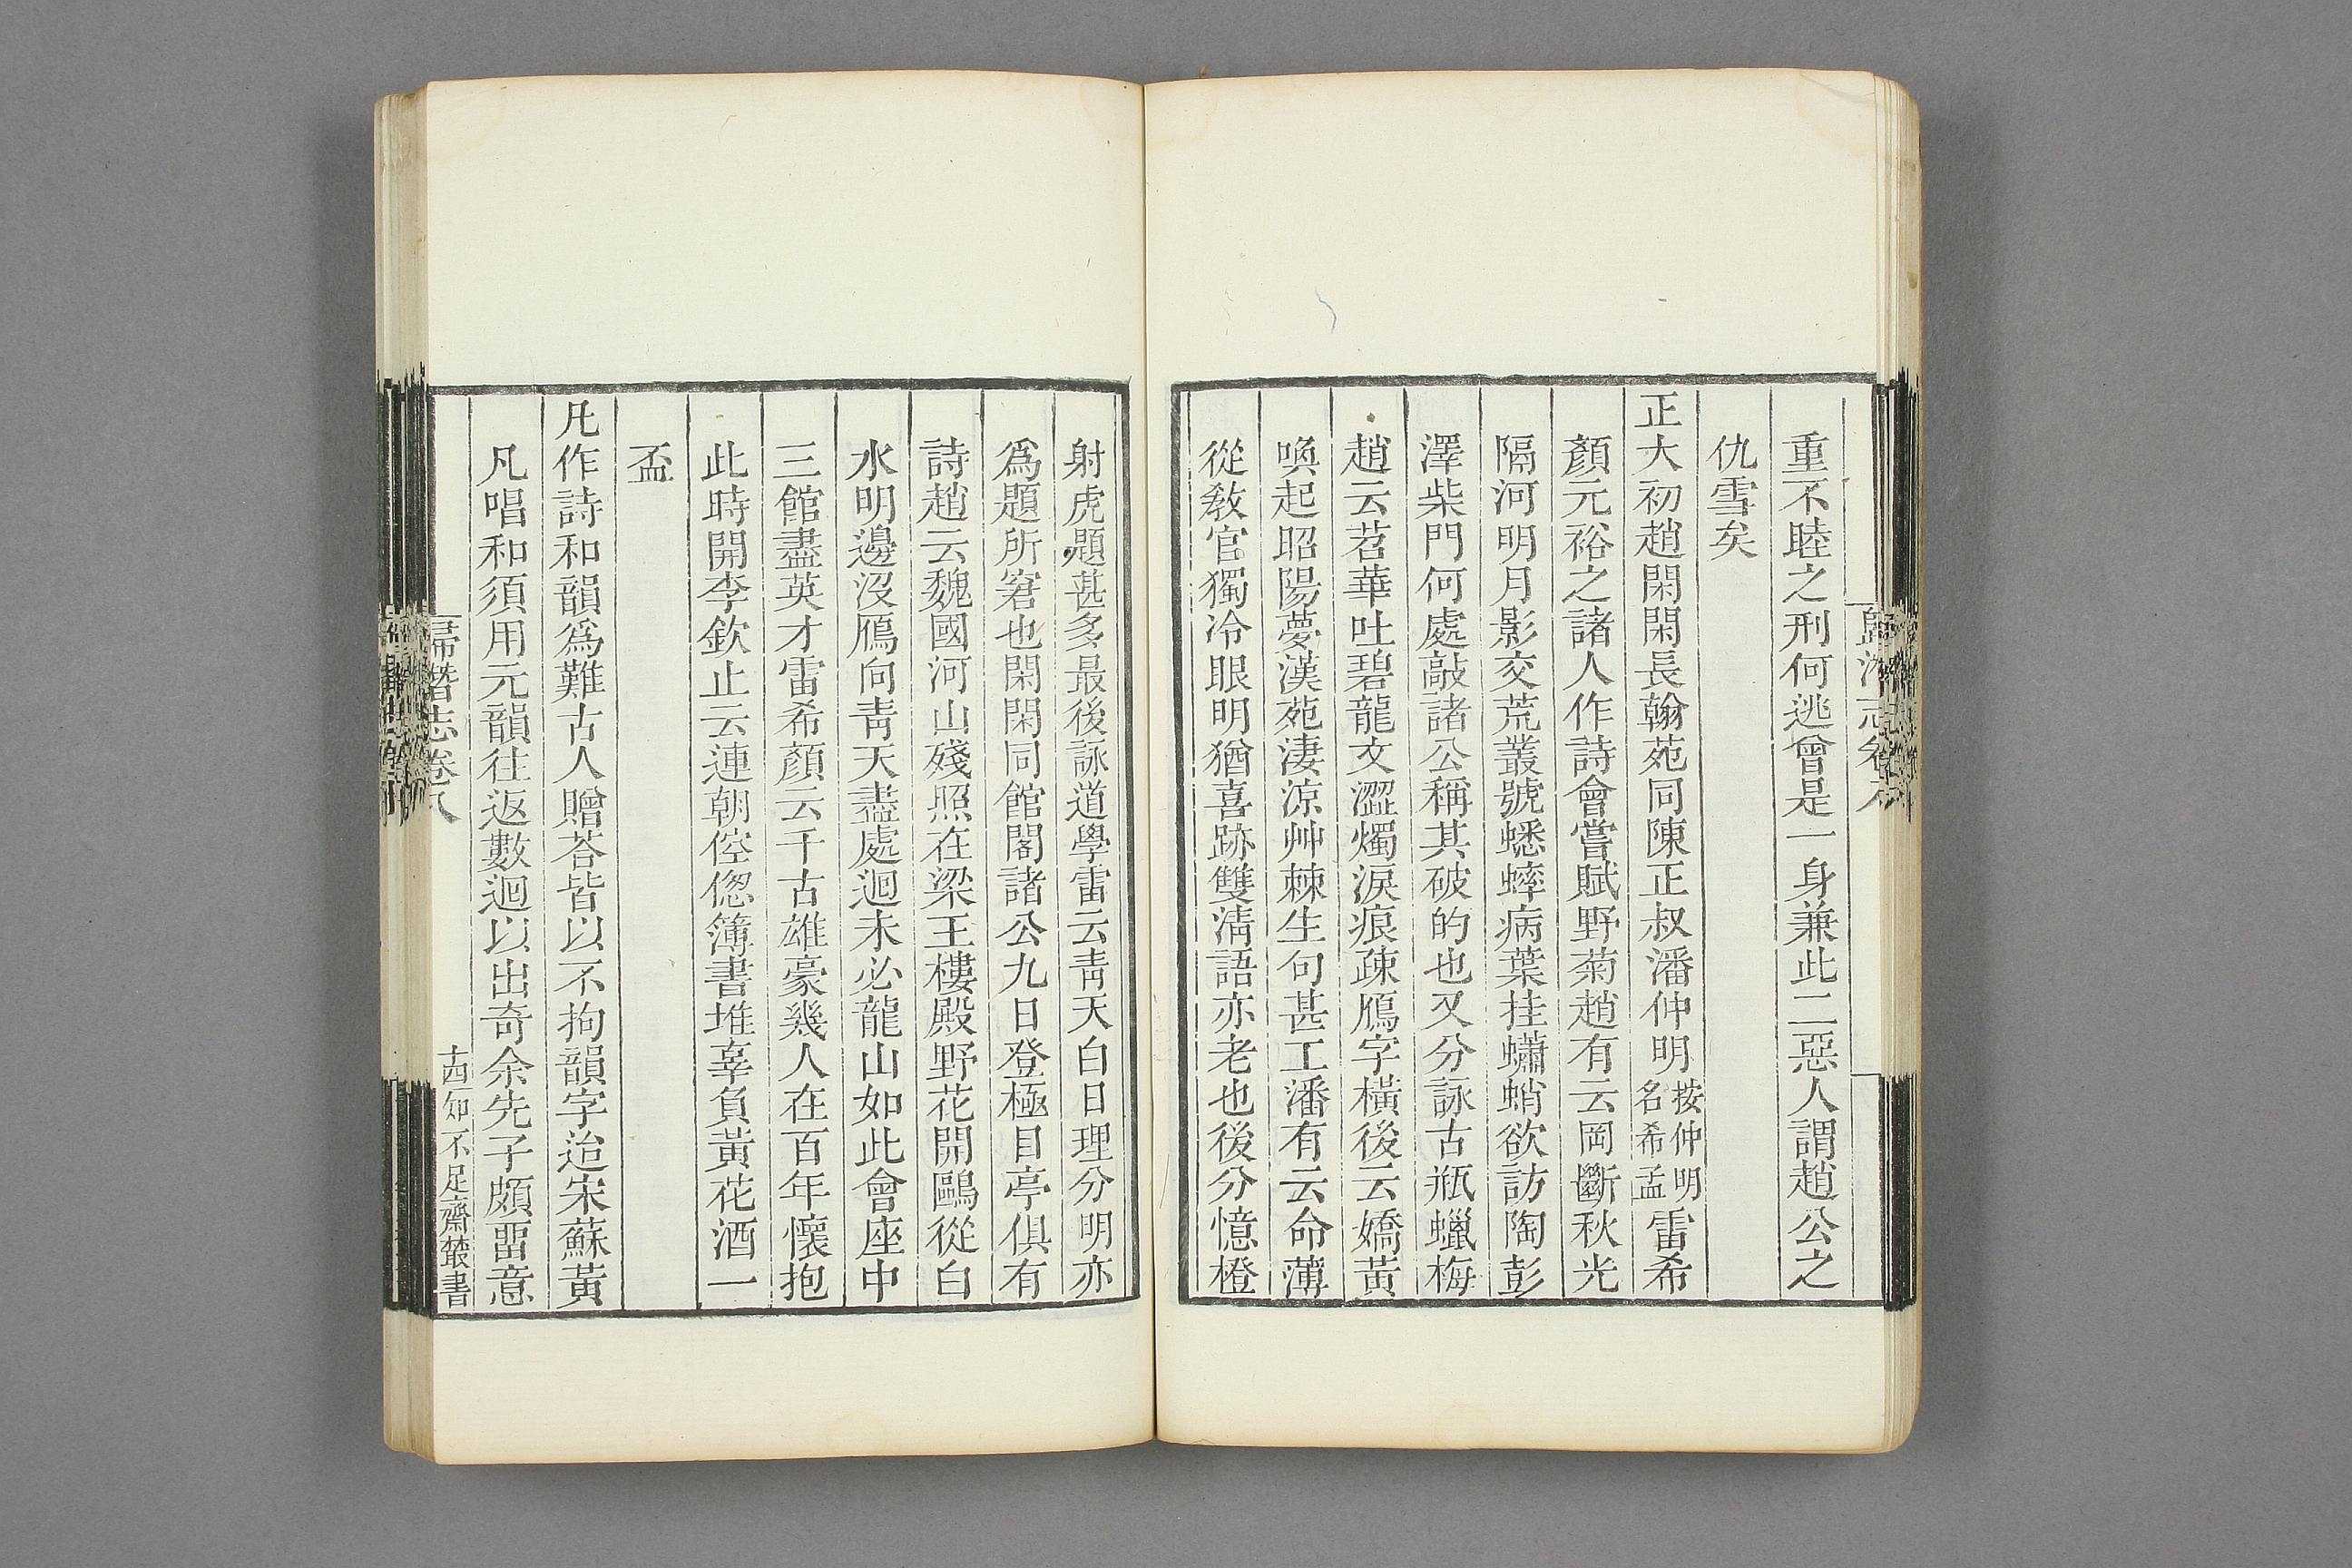 重不睦之刑何逃曾是一身兼此二惡人謂趙公之
仇雪矣
正大初趙閑閑長翰苑同陳正叔潘仲明按仲明名希孟雷希
顏元裕之諸人作詩會嘗賦野菊趙有云岡斷秋光
隔河明月影交荒叢號蟋蟀病葉挂蠨蛸欲訪陶彭
澤柴門何處敲諸公稱其破的也又分詠古瓶蠟梅
趙云苕華吐碧龍文澀燭淚痕疎鴈字橫後云嬌黃
喚起昭陽夢漢苑淒涼艸棘生句甚工潘有云命薄
從教官獨冷眼明猶喜跡雙淸語亦老也後分憶橙
射虎題甚多最後詠道學雷云靑天白日理分明亦
爲題所窘也閑閑同館閣諸公九日登極目亭俱有
詩趙云魏國河山殘照在梁王樓殿野花開鷗從白
水明邊沒鴈向靑天盡處迴未必龍山如此會座中
三館盡英才雷希顏云千古雄豪幾人在百年懷抱
此時開李欽止云連朝倥傯簿書堆辜負黃花酒一
盃
凡作詩和韻爲難古人贈荅皆以不拘韻字迨宋蘇黃
凡唱和須用元韻往返數迴以出奇余先子頗畱意
歸潛志卷八
十四
知不足齋叢書